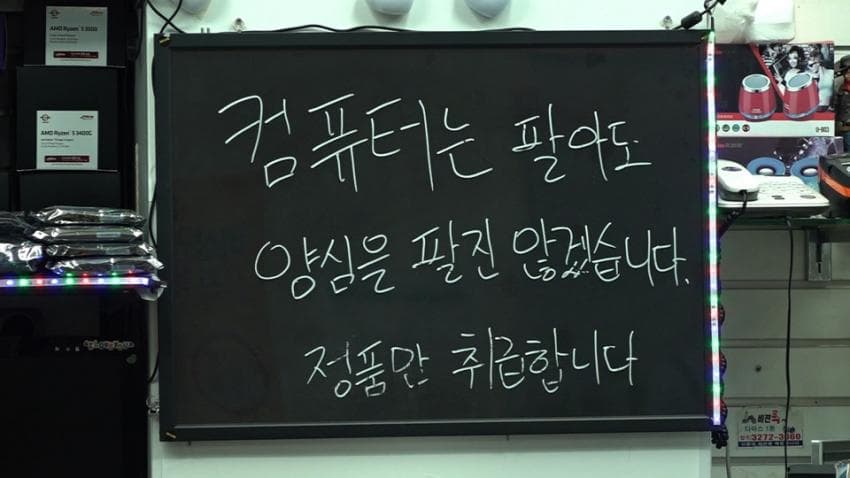 컴퓨터는 팔아도
양심을 팔진 않겠습니다.
정품만 취급합니다
AMD Ryzen 5 3500
AMD Ryzen 5 3400G
U-803
3272-3860